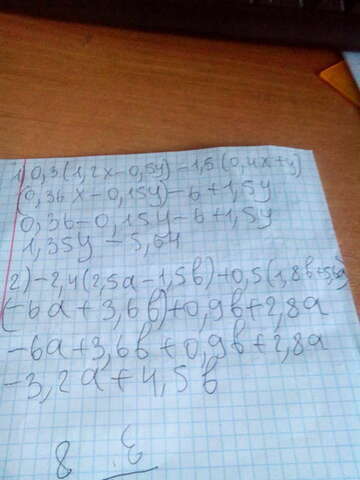 1) 0,3(1,2x-0,5y)-1,5(0,4x+y)
(0,36x-0,15y)-6+1,5y
0,36-0,15y-6+1,5y
1,35y-5,64
2)-2,4(2,5a-1,5b)+0,5(1,8b+5,6a)
(-6a+3,6b)+0,9b+2,8a
-6a+3,6b+0,9b+2,8a
-3,2a+4,5b